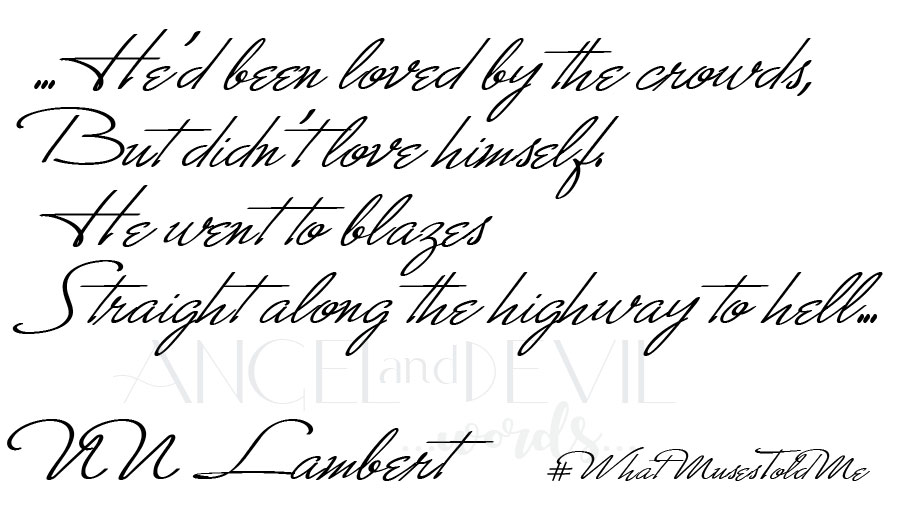 ...He'd been loved by the crowds,
But didn't love himself.
He went to blazes
Straight along the highway to hell...
ANGEL and DEVIL
...words...
NN Lambert
#WhatMusesToldMe